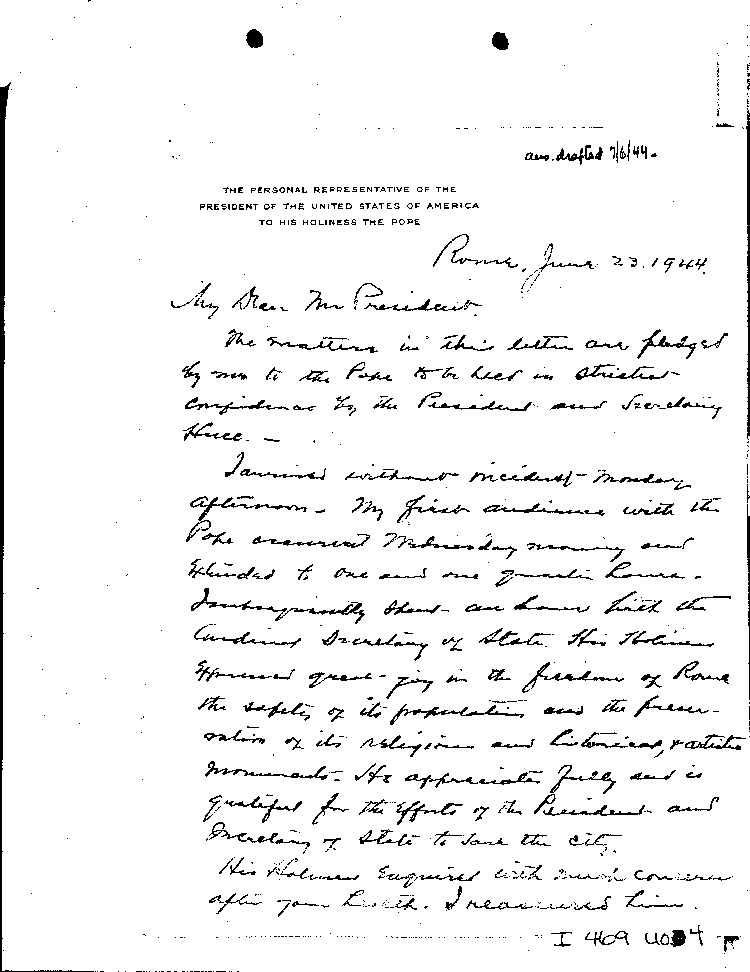 ans. drafted 7/6/44.
THE PERSONAL REPRESENTATIVE OF THE
PRESIDENT OF THE UNITED STATES OF AMERICA
TO HIS HOLINESS THE POPE
Rome, June 23. 1944.
My Dear Mr President.
The matters in this letter are pledged
by me to the Pope to be held in strictest
confidence by the President and Secretary
Hull. –
I arrived without incident Monday
afternoon. My first audience with the
Pope occurred Wednesday morning and
extended to one and one quarter hours.
I subsequently spent an hour with the
Cardinal Secretary of State. His Holiness
expressed great joy in the freedom of Rome
the safety of its population and the preser-
vation of its religious and historical, & artistic
monuments. He appreciates fully and is
grateful for the efforts of the President and
Secretary of State to save the city.
His Holiness enquired with much concern
after your health. I reassured him.
I 469 U034